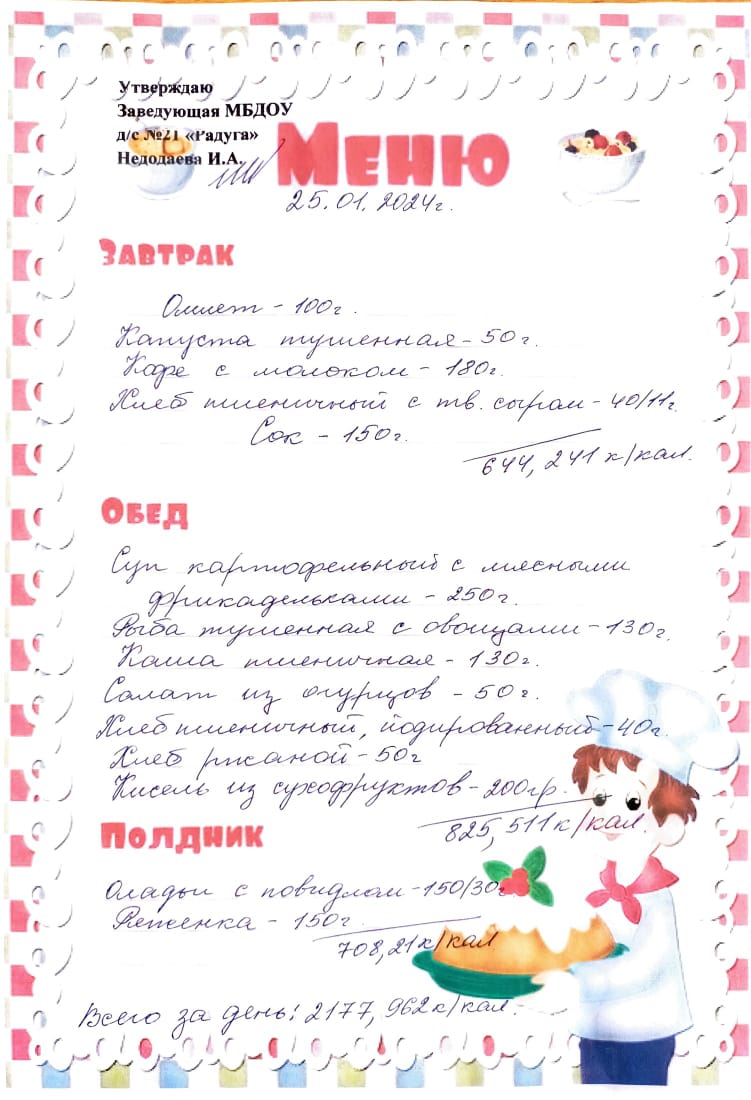 Утверждаю
Заведующая МБДОУ
д/с №21 «Радуга»
Недодаева И.А.
Меню
25.01.2024г.
Завтрак
Омлет - 100г.
Капуста тушенная - 50г.
Кофе с молоком - 180г.
Хлеб пшеничный с тв. сыром - 40/11г.
Сок - 150г.
644,241 к/кал.
Обед
Суп картофельный с мясными
фрикадельками - 250г.
Рыба тушенная с овощами - 130г.
Каша пшеничная - 130г.
Салат из огурцов - 50г.
Хлеб пшеничный, йодированный - 40г.
Хлеб ржаной - 50г
Кисель из сухофруктов - 200гр.
825,511 к/кал.
Полдник
Оладьи с повидлом - 150/30г
Ряженка - 150г.
708,21 к/кал
Всего за день: 2177,962 к/кал.